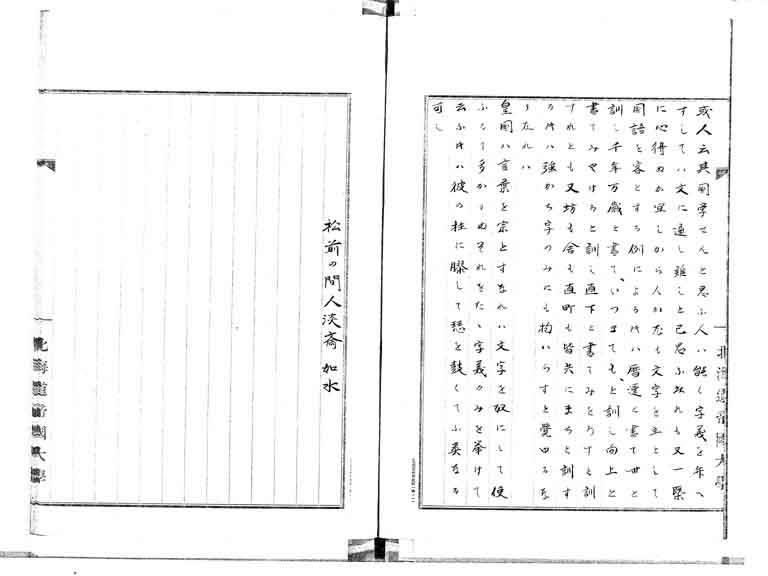 或人云其国学せんと思ふ人ハ能く字義を弁へ
すしてハ文に通し難しと己思ふ然れとも又一槩
に心得ぬか宜しから人かたも文字を主として
国語を客とする例によるけハ暦運と書て世と
訓し千年万歳と書て、いつまても、と訓し向上と
書てみやけると訓し直下と書てみをろすと訓
すれとも又坊も舎も直町も皆共にまちと訓す
るけハ強かち字のみにも拘いらすと覚ゆるな
りたれハ
皇国ハ言葉を宗とすなれハ文字を奴にして使
ふて多かりぬそれをたゝ字義のみを挙けて
云ふけハ彼の柱に膠して瑟を鼓くてふ類なる
可し
松前の間人淡斎 如水
北海道帝国大学
北海道帝国大学